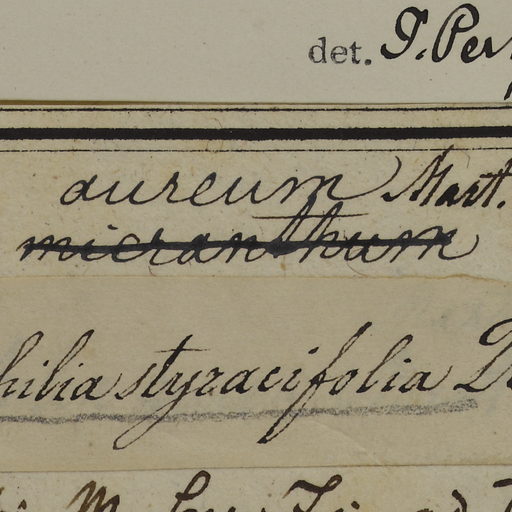 det. J. Per
aureum Mart.
micranthum
hilia styracifolia D